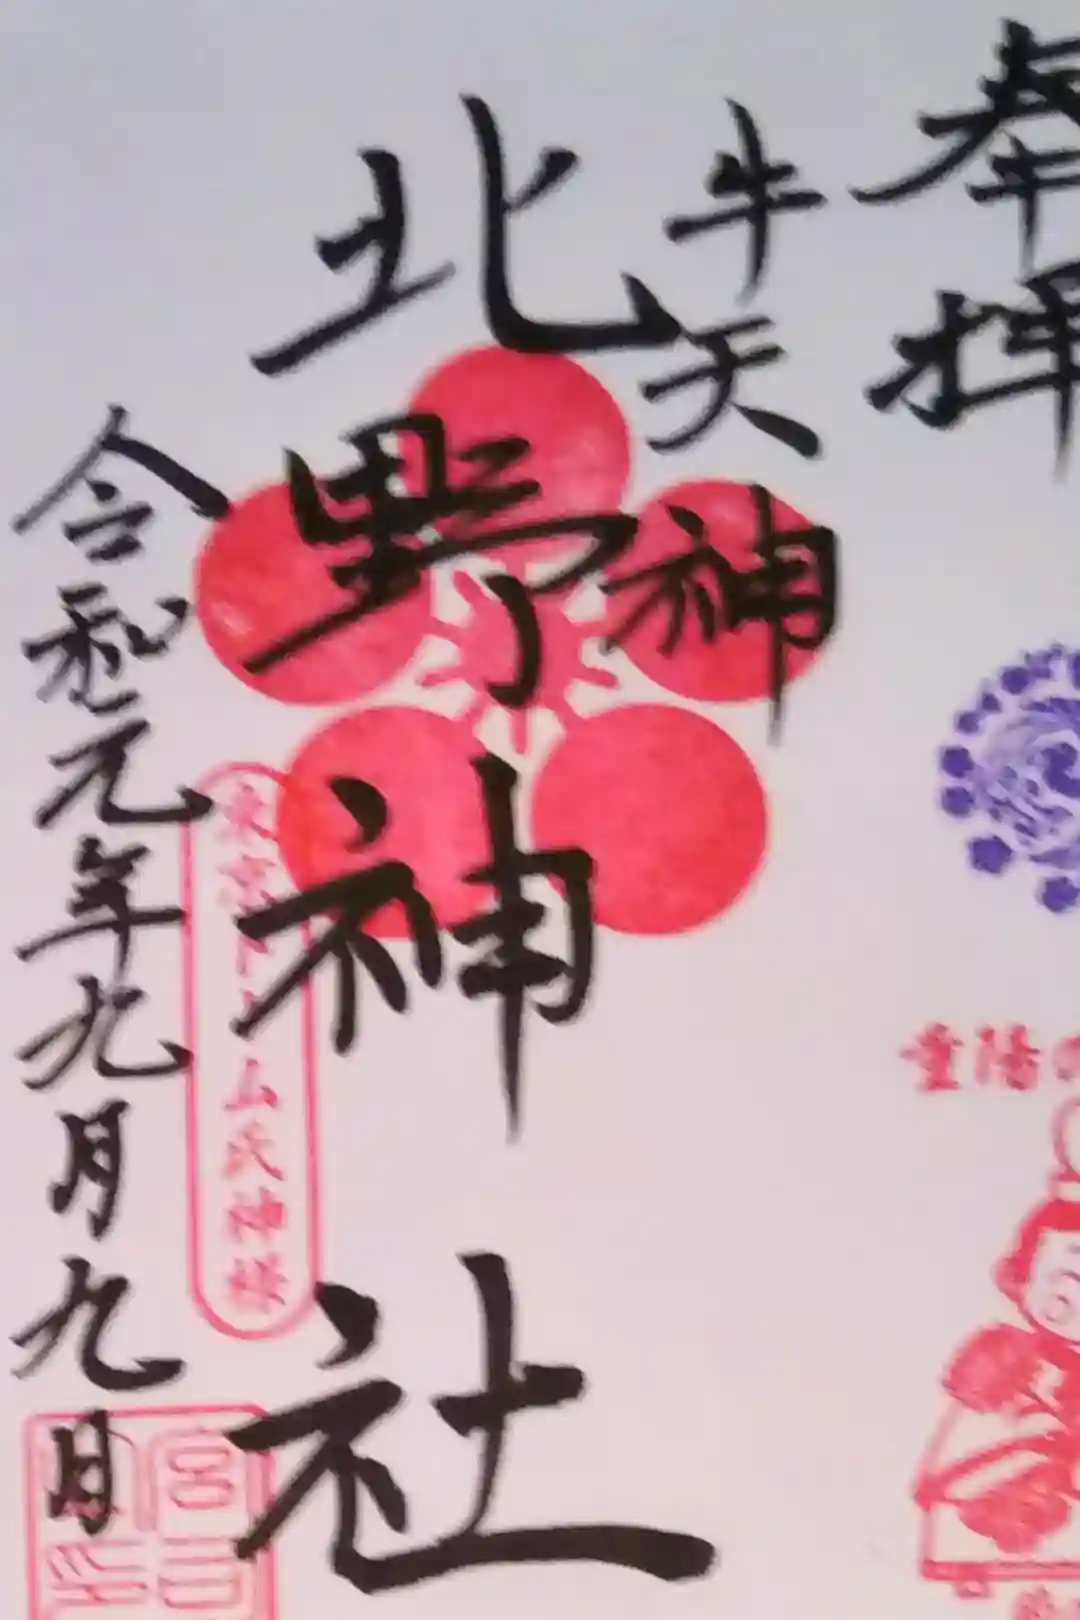 奉拝
牛天神
北野神社
令和元年九月九日
重陽の
東京 小石川 氏神様